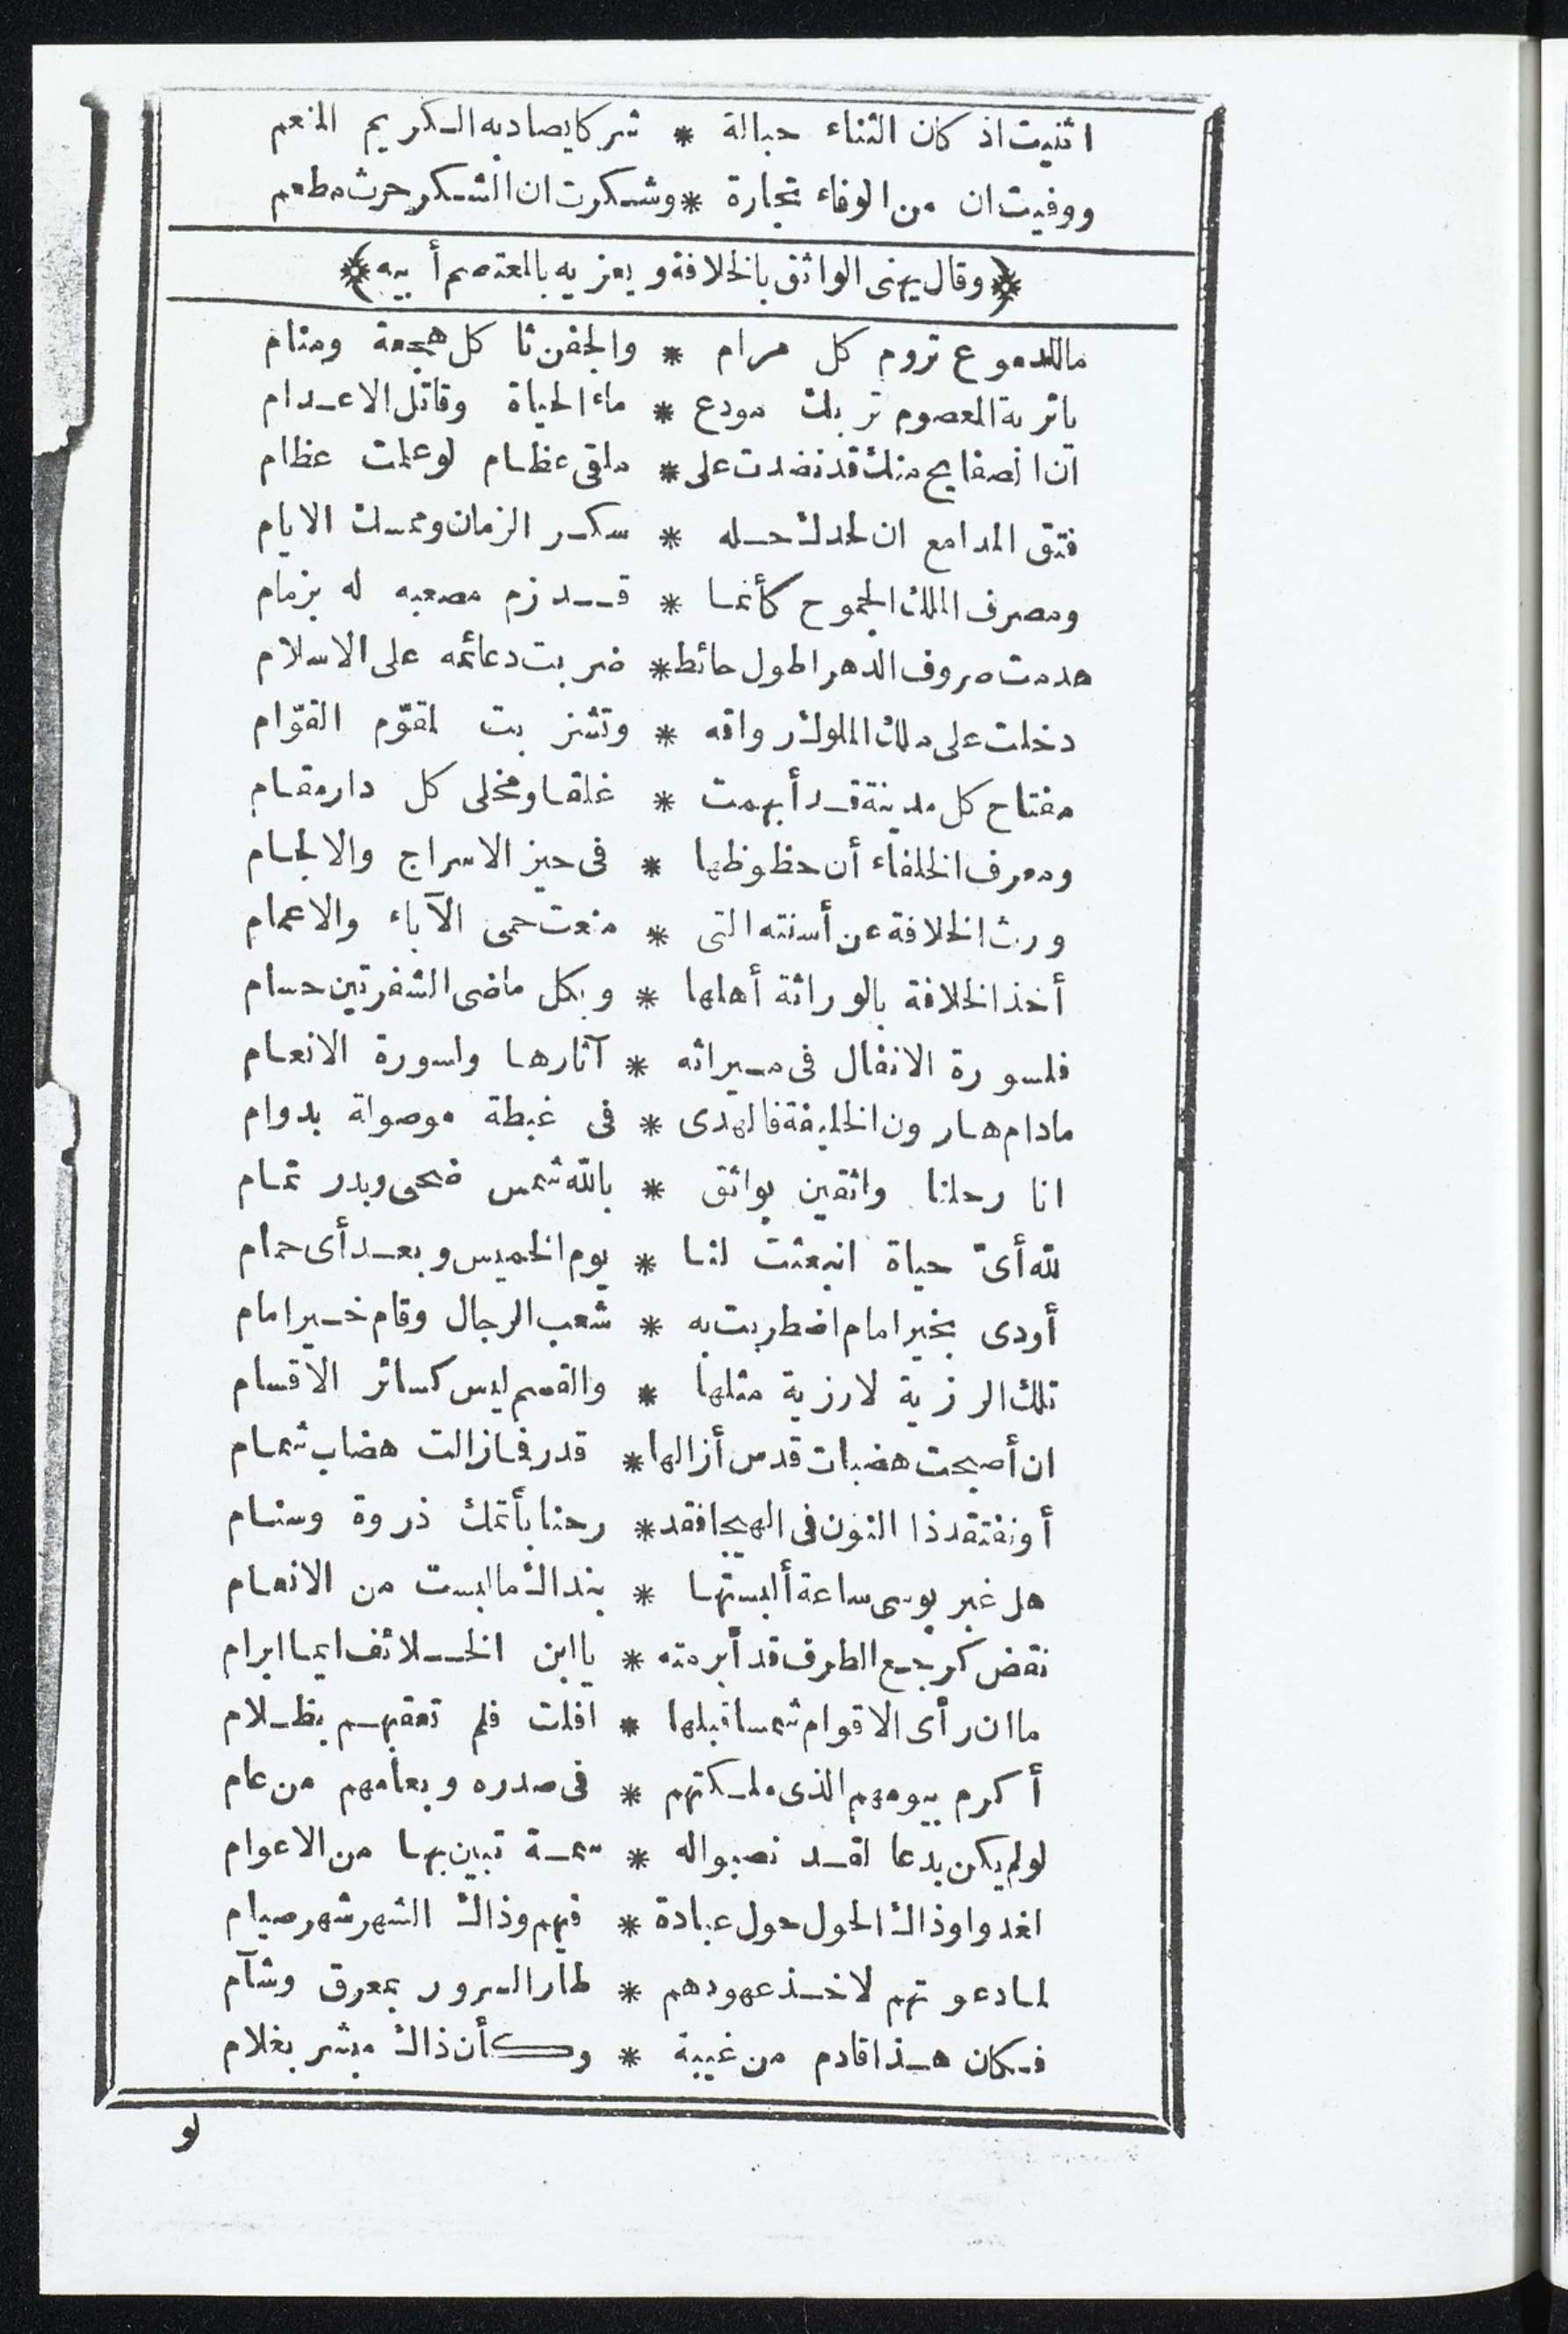 اثنيت اذ كان الثناء حبالة * شركا يصاد به الكريم المنعم
ووفيت ان من الوفاء تجارة * وشكرت ان الشكر حرث مطعم
﴿وقال يهنى الواثق بالخلافة ويعزيه بالمعتصم أبيه﴾
ماللدموع تروم كل مرام * والجفن ثا كل هجعة ومنام
ياتربة المعصوم تربك مودع * ماء الحياة وقاتل الاعدام
ان الصفايح منك قد نضدت على * ملقى عظام لو علمت عظام
فتق المدامع ان لحدك حله * سكر الزمان وممسك الايام
ومصرف الملك الجموح كأنما * قد زم مصعبه له بزمام
هدمت صروف الدهر اطول حائط * ضربت دعائمه على الاسلام
دخلت على ملك الملوك رواقه * وتشنزبت لمقوّم القوّام
مفتاح كل مدينة قد أبهمت * غلقا ومخلى كل دار مقام
ومعرف الخلفاء أن حظوظها * فى حيز الاسراج والالجام
ورث الخلافة عن أسنته التى * منعت حمى الآباء والاعمام
أخذ الخلافة بالوراثة أهلها * وبكل ماضى الشفرتين حسام
فلسورة الانفال فى ميراثه * آثارها ولسورة الانعام
مادام هارون الخليفة فالهدى * فى غبطة موصولة بدوام
انا رحلنا واثقين بواثق * بالله شمس ضحى وبدر تمام
لله أىّ حياة انبعثت لنا * يوم الخميس وبعد أى حمام
أودى بخير امام اضطربت به * شعب الرجال وقام خير امام
تلك الرزية لارزية مثلها * والقسم ليس كسائر الاقسام
ان أصبحت هضبات قدس أزالها * قدر فما زالت هضاب شمام
أو نفتقد ذا النون فى الهيجا فقد * رحنا بأتمك ذروة وسنام
هل غير بوسى ساعة ألبستها * بنداك ما لبست من الانعام
نقض كرجع الطرف قد أبرمته * يا ابن الخلائف ايما ابرام
ما ان رأى الاقوام شمسا قبلها * افلت فلم تعقبهم بظلام
أكرم بيومهم الذى ملكتهم * فى صدره وبعامهم من عام
لو لم يكن بدعا لقد نصبوا له * سمة تبين بها من الاعوام
لغدوا وذاك الحول حول عبادة * فيهم وذاك الشهر شهر صيام
لما دعوتهم لاخذ عهودهم * طار السرور بمعرق وشآم
فكان هذا قادم من غيبة * وكأن ذاك مبشر بغلام
لو